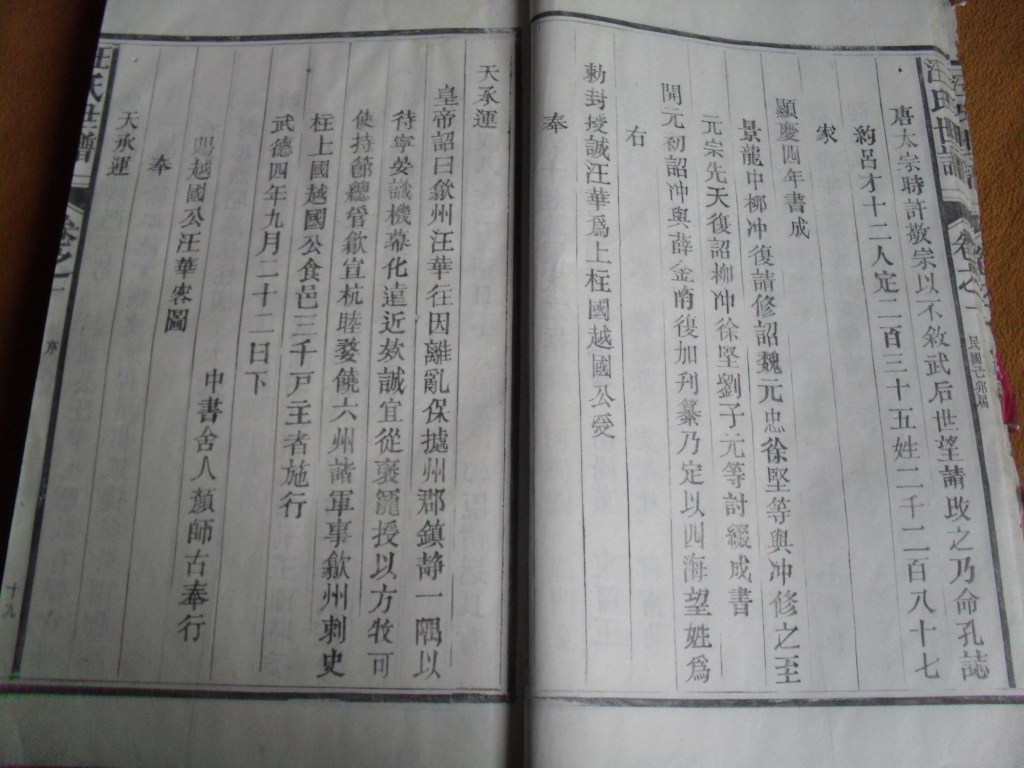 汪氏世譜
卷之一
唐太宗時許敬宗以不敘武后世望請改之乃命孔誌
約呂才十二人定二百三十五姓二千二百八十七
家
顯慶四年書成
景龍中柳冲復請修詔魏元忠徐堅等與冲修之至
元宗先天復詔柳冲徐堅劉子元等討綴成書
開元初詔冲與薛金南復加刋纂乃定以四海望姓爲
右
勅封授誠汪華爲上柱國越國公受
奉
天承運
皇帝詔曰歙州汪華往因離亂保據州郡鎮静一隅以
待寧晏識機慕化遠近欵誠宜從襃寵授以方牧可
使持節總管歙宣杭睦婺饒六州諸軍事歙州刺史
柱上國越國公食邑三千戸主者施行
武德四年九月二十二日下
中書舍人顏師古奉行
越國公汪華客圖
奉
天承運
汪氏世譜
卷之一
序
十九